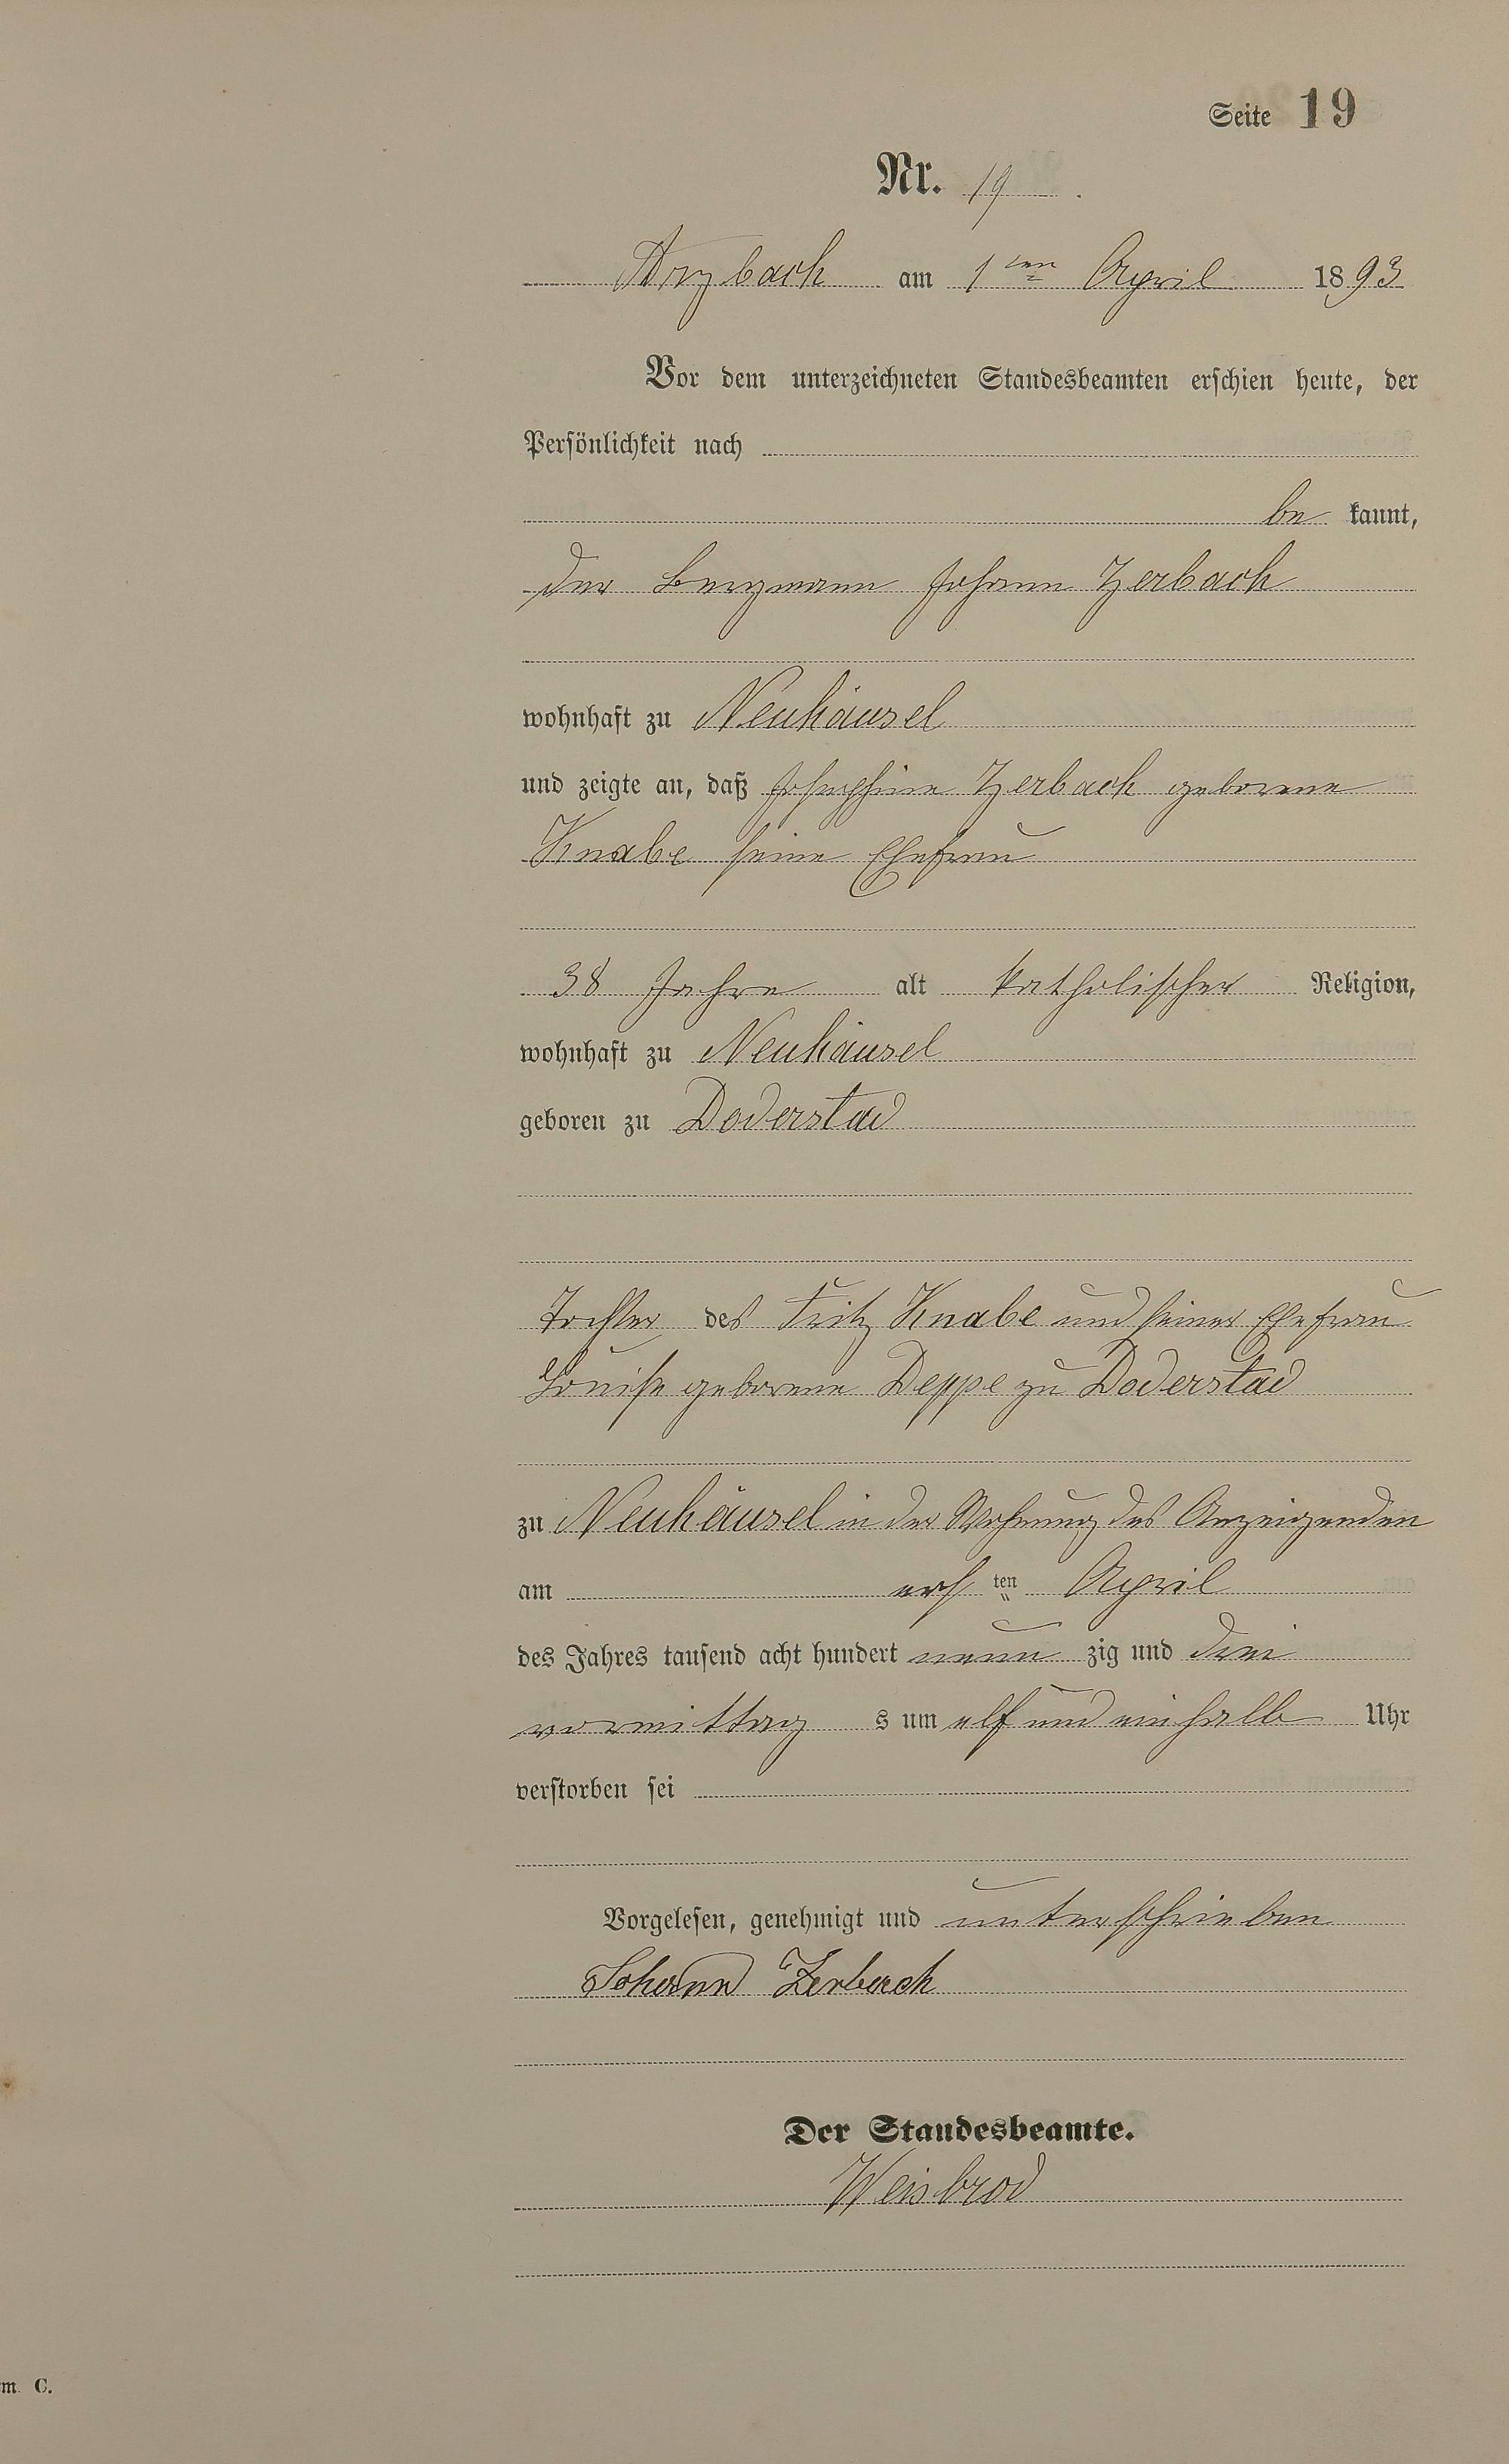 Seite 19
Nr. 19.
Arzbach am 1ten April 1893
Vor dem unterzeichneten Standesbeamten erschien heute, der
Persönlichkeit nach
be kannt,
der Bergmann Johann Zerbach
wohnhaft zu Neuhäusel
und zeigte an, daß Josephine Zerbach geborene
Knabe seine Ehefrau
38 Jahre alt katholischer Religion,
wohnhaft zu Neuhäusel
geboren zu Doderstad
Tochter des Fritz Knabe und seiner Ehefrau
Louise geborene Deppe zu Doderstad
zu Neuhäusel in der Wohnung des Anzeigenden
am ersten April
des Jahres tausend acht hundert neun zig und drei
vormittag s um elf und einhalb Uhr
verstorben sei
Vorgelesen, genehmigt und unterschrieben
Johann Zerbach
Der Standesbeamte.
Weisbrod
m. C.